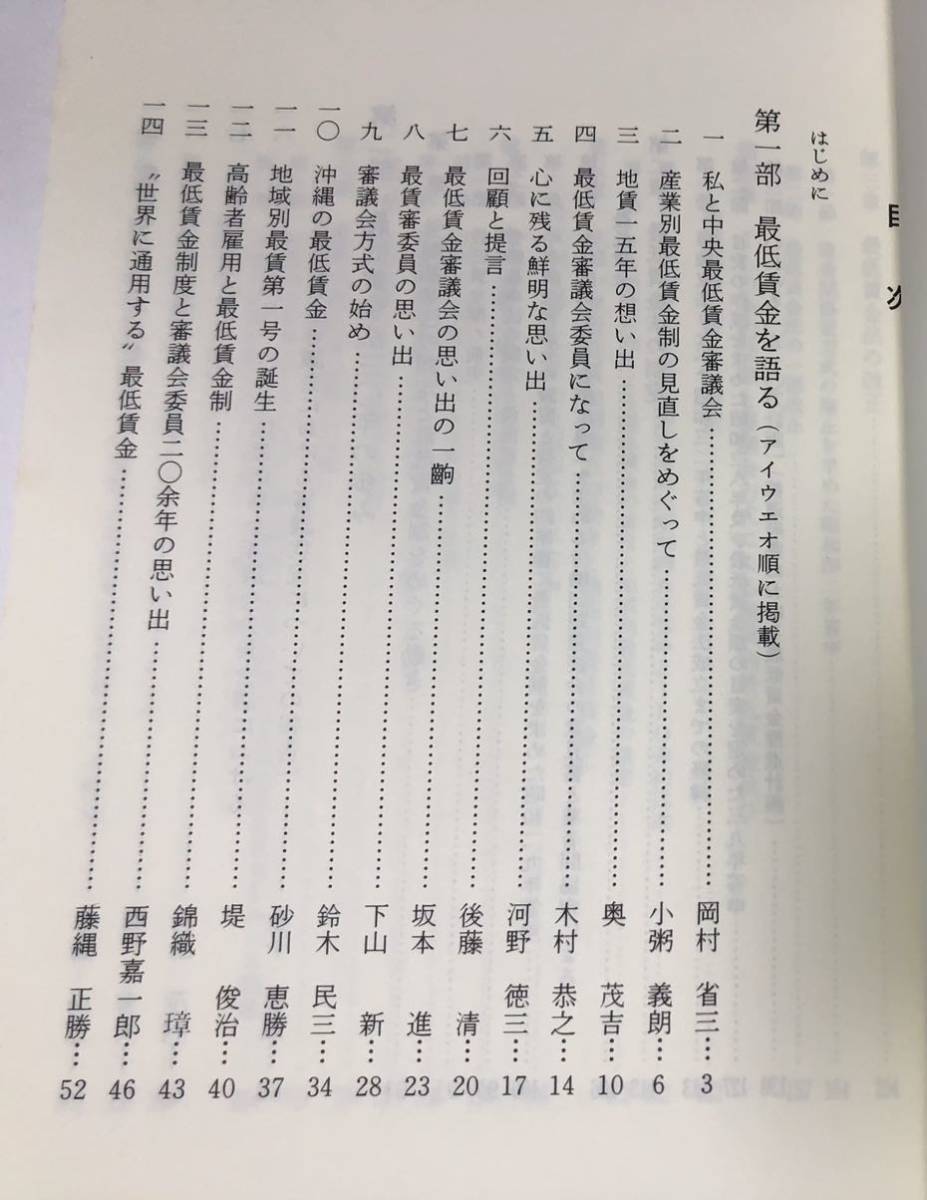 目次
はじめに
第一部 最低賃金を語る（アイウエオ順に掲載）
一 私と中央最低賃金審議会……岡村 省三… 3
二 産業別最低賃金制の見直しをめぐって……小粥 義朗… 6
三 地賃一五年の想い出……奥 茂吉… 10
四 最低賃金審議会委員になって……木村 恭之… 14
五 心に残る鮮明な思い出……河野 徳三… 17
六 回顧と提言……後藤 清… 20
七 最低賃金審議会の思い出の一齣……坂本 進… 23
八 最賃審委員の思い出……下山 新… 28
九 審議会方式の始め……鈴木 民三… 34
一〇 沖縄の最低賃金……砂川 恵勝… 37
一一 地域別最賃第一号の誕生……堤 俊治… 40
一二 高齢者雇用と最低賃金制……錦織 璋… 43
一三 最低賃金制度と審議会委員二〇余年の思い出……西野嘉一郎… 46
一四 〝世界に通用する〟最低賃金……藤縄 正勝… 52